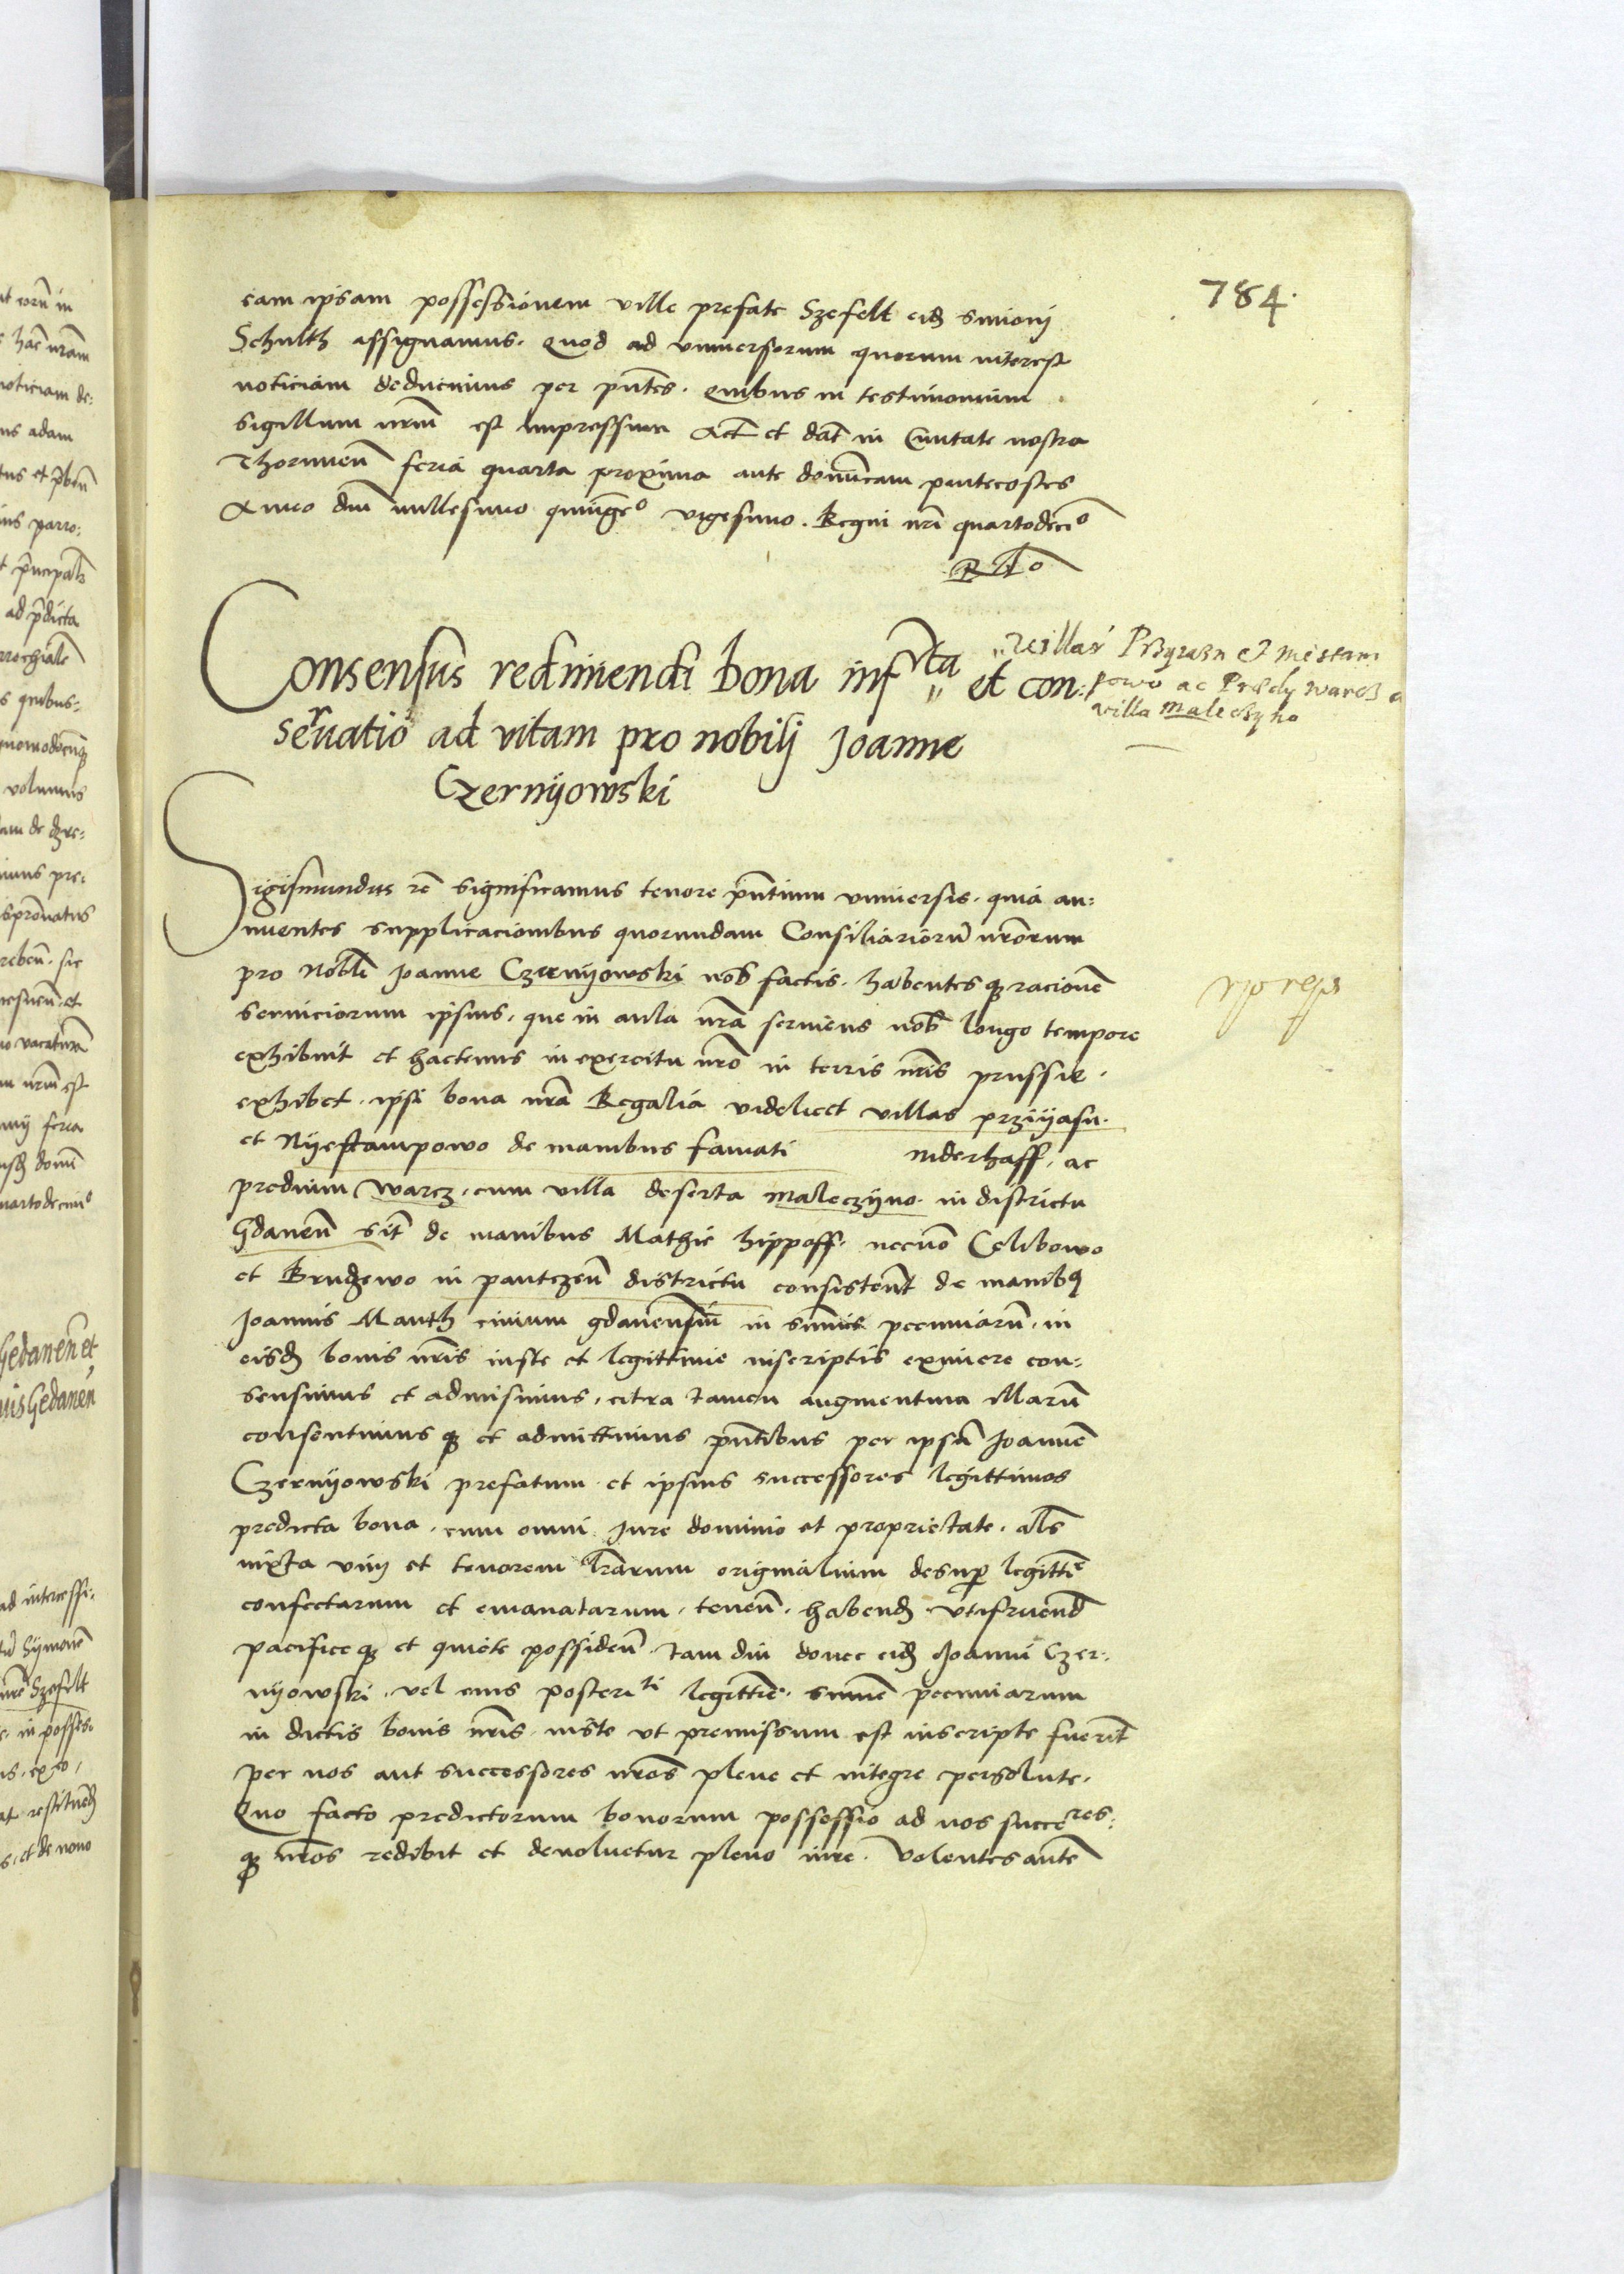 784.
eam ipsam possessionem ville prefate Szefelt eid simonj
Schulth assignamus. Quod ad vniuersorum quorum interest
noticiam deducimus per pntes. Quibus in testimonium
sigillum nrm est impressum Act et dat in Ciuitate nostra
Thorunen feria quarta proxima ante dominicam pentecostes
Anno dni millesimo quingeo vigesimo. Regni nri quartodecio
Consensus redimendi bona infrcta et con:
seruatio ad vitam pro nobilj Joanne
Czernyowski
villas Przyiazn et niestam
powo ac Predy warcz
villa maleczyno
Sigismundus rc significamus tenore pntium vniuersis. quia an:
nuentes supplicacionibus quorundam Consiliariorum nrorum
pro Nobli Joanne Czernyowski nob factis. habentesq racionem
seruiciorum ipsius, que in aula nra seruiens nob longo tempore
exhibuit et hactenus in exercitu nro in terris nris prussie.
exhibet. ipsi bona nra Regalia videlicet villas prziyasn.
et Nyestampowo de manibus famati niderhaff, ac
predium warcz, cum villa deserta maleczyno. in districtu
Gdanen sit de manibus Mathie hippoff. necno Celbowo
et Brudzewo in pautczen districtu consistent de manibq
Joannis Manth ciuium gdanensiu in summis pecuniaru, in
eisd bonis nris iuste et legittime inscriptis eximere con:
sensimus et admisimus, citra tamen augmentum illarum
consentimusq et admittimus pntibus per ipsum Joannem
Czernyowski prefatum et ipsius successores legittimos
predicta bona, cum omni Jure dominio et proprietate. als
iuxta vim et tenorem lrarum originalium desup legittie
confectarum et emanatarum, tenen. habend. vtifruend
pacificeq et quiete possiden. tam diu donec eid Joanni Czer:
nyowski, vel eius posteriti legittime. summe pecuniarum
in dictis bonis nris. iuste vt premissum est inscripte fuerit
per nos aut successores nros plene et integre persolute.
Quo facto predictorum bonorum possessio ad nos succeres:
q nros redibit et deuoluetur pleno iure. Volentes autem